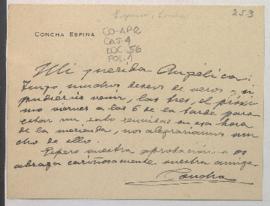 253
CONCHA ESPINA
CO-APR
CAJ.4
DOC.56
FOL.1
Mi querida Angélica:
Tengo muchos deseos de veros, si
pudiérais venir, las tres, el próxi
mo viernes a las 6 de la tarde para
estar un rato reunidas en esa hora
de la merienda, nos alegraríamos mu
cho de ello.
Espero vuestra aprobación. os
abraza cariñosamente vuestra amiga
Concha